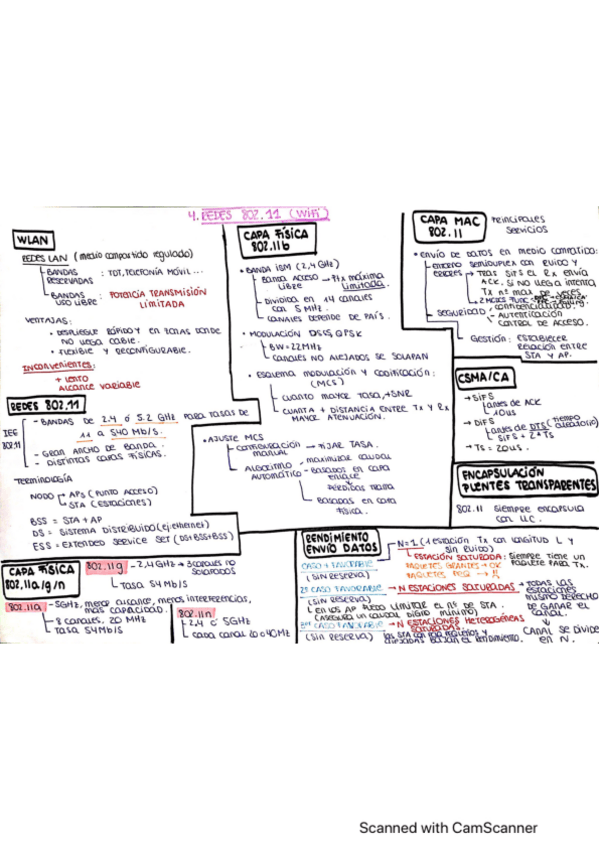 4. REDES 802.11 (WiFi)
WLAN
REDES LAN (medio compartido regulado)
BANDAS RESERVADAS : TDT, TELEFONÍA MÓVIL ...
BANDAS USO LIBRE : POTENCIA TRANSMISIÓN
LIMITADA
VENTAJAS:
• DESPLIEGUE RÁPIDO y EN ZONAS DONDE
NO LLEGA CABLE.
• FLEXIBLE Y RECONFIGURABLE.
INCONVENIENTES:
+ LENTO
ALCANCE VARIABLE
REDES 802.11
IEE
802.11
- BANDAS DE 2.4 ó 5.2 GHz PARA TASAS DE
11 a 540 Mb/s.
- GRAN ANCHO DE BANDA.
- DISTINTAS CAPAS FÍSICAS.
TERMINOLOGÍA
NODO
APs (PUNTO ACCESO)
STA (ESTACIONES)
BSS = STA + AP
DS = SISTEMA DISTRIBUIDO (ej: ethernet)
ESS = EXTENDED SERVICE SET (DS+BSS+BSS)
CAPA FÍSICA
802.11b
• BANDA ISM (2,4 GHz)
BANDA ACCESO LIBRE → Ptx máxima
Limitada.
DIVIDIDA EN 14 CANALES
CON 5 MHz.
CANALES DEPENDE DE PAÍS.
• MODULACIÓN DSSS, QPSK
BW = 22MHz
CANALES NO ALEJADOS SE SOLAPAN
• ESQUEMA MODULACIÓN Y CODIFICACIÓN:
(MCS)
CUANTO MAYOR TASA, +SNR
CUANTA + DISTANCIA ENTRE TX Y RX
MAYOR ATENUACIÓN.
• AJUSTE MCS
CONFIGURACIÓN MANUAL → FIJAR TASA.
ALGORITMO AUTOMÁTICO
- MAXIMIZAR CAUDAL
- BASADOS EN CAPA
ENLACE
↳ PÉRDIDAS TRAMA
BASADAS EN CAPA
FÍSICA.
CAPA MAC
802.11
PRINCIPALES
SERVICIOS
• ENVÍO DE DATOS EN MEDIO COMPARTIDO:
ENTORNO SEMIDUPLEX CON RUIDO Y
ERRORES → TRAS SIFS EL RX ENVÍA
ACK, SI NO LLEGA INTENTA
TX nº MAX DE VECES
SEGURIDAD: CONFIDENCIALIDAD
- AUTENTICACIÓN
CONTROL DE ACCESO.
GESTIÓN: ESTABLECER
RELACIÓN ENTRE
STA Y AP.
CSMA/CA
→ SIFS
antes de ACK
10us
→ DIFS
antes de DTS (tiempo aleatorio)
SIFS + 2*Ts
→ Ts = 20us.
ENCAPSULACIÓN
PUENTES TRANSPARENTES
802.11 SIEMPRE ENCAPSULA
CON LLC.
CAPA FÍSICA
802.11a/g/n
802.11g - 2,4GHz → 3 canales no
SOLAPADOS
Tasa 54 Mb/s
802.11a - 5GHz, menor alcance, menos interferencias,
más capacidad.
8 canales, 20 MHz
Tasa 54Mb/s
802.11n
2,4 ó 5GHz
cada canal 20 ó 40MHz
RENDIMIENTO
ENVÍO DATOS
CASO + FAVORABLE
(SIN RESERVA)
→ N=1 (1 estación Tx con longitud L y
sin ruido)
ESTACIÓN SATURADA: SIEMPRE TIENE UN
PAQUETE PARA TX.
PAQUETES GRANDES → OK
2º CASO FAVORABLE
(SIN RESERVA)
→ N ESTACIONES SATURADAS → TODAS LAS
ESTACIONES
MISMO DERECHO
DE GANAR EL
CANAL
↓
CANAL SE DIVIDE
EN N.
EN LOS AP PUEDO LIMITAR EL Nº DE STA.
(ASEGURA UN CAUDAL DIGNO MÍNIMO)
3er CASO FAVORABLE
(SIN RESERVA)
→ N ESTACIONES HETEROGÉNEAS
SATURADAS:
Scanned with CamScanner